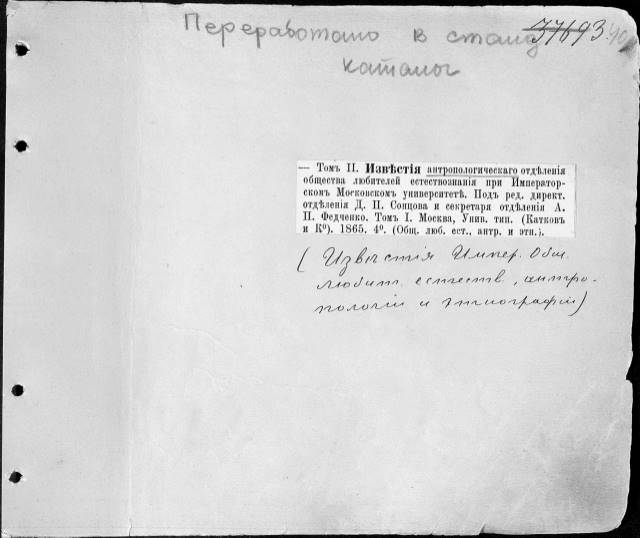 Переработано в станд
каталог
37693
— Томъ II. Извѣстія антропологическаго отдѣленія
общества любителей естествознанія при Император-
скомъ Московскомъ университетѣ. Подъ ред. директ.
отдѣленія Д. П. Сонцова и секретаря отдѣленія А.
П. Федченко. Томъ I. Москва, Унив. тип. (Катковъ
и К⁰). 1865. 4⁰. (Общ. люб. ест., антр. и этн.).
(Извѣстія Импер. Общ.
любит. естеств., антро-
пологіи и этнографіи)